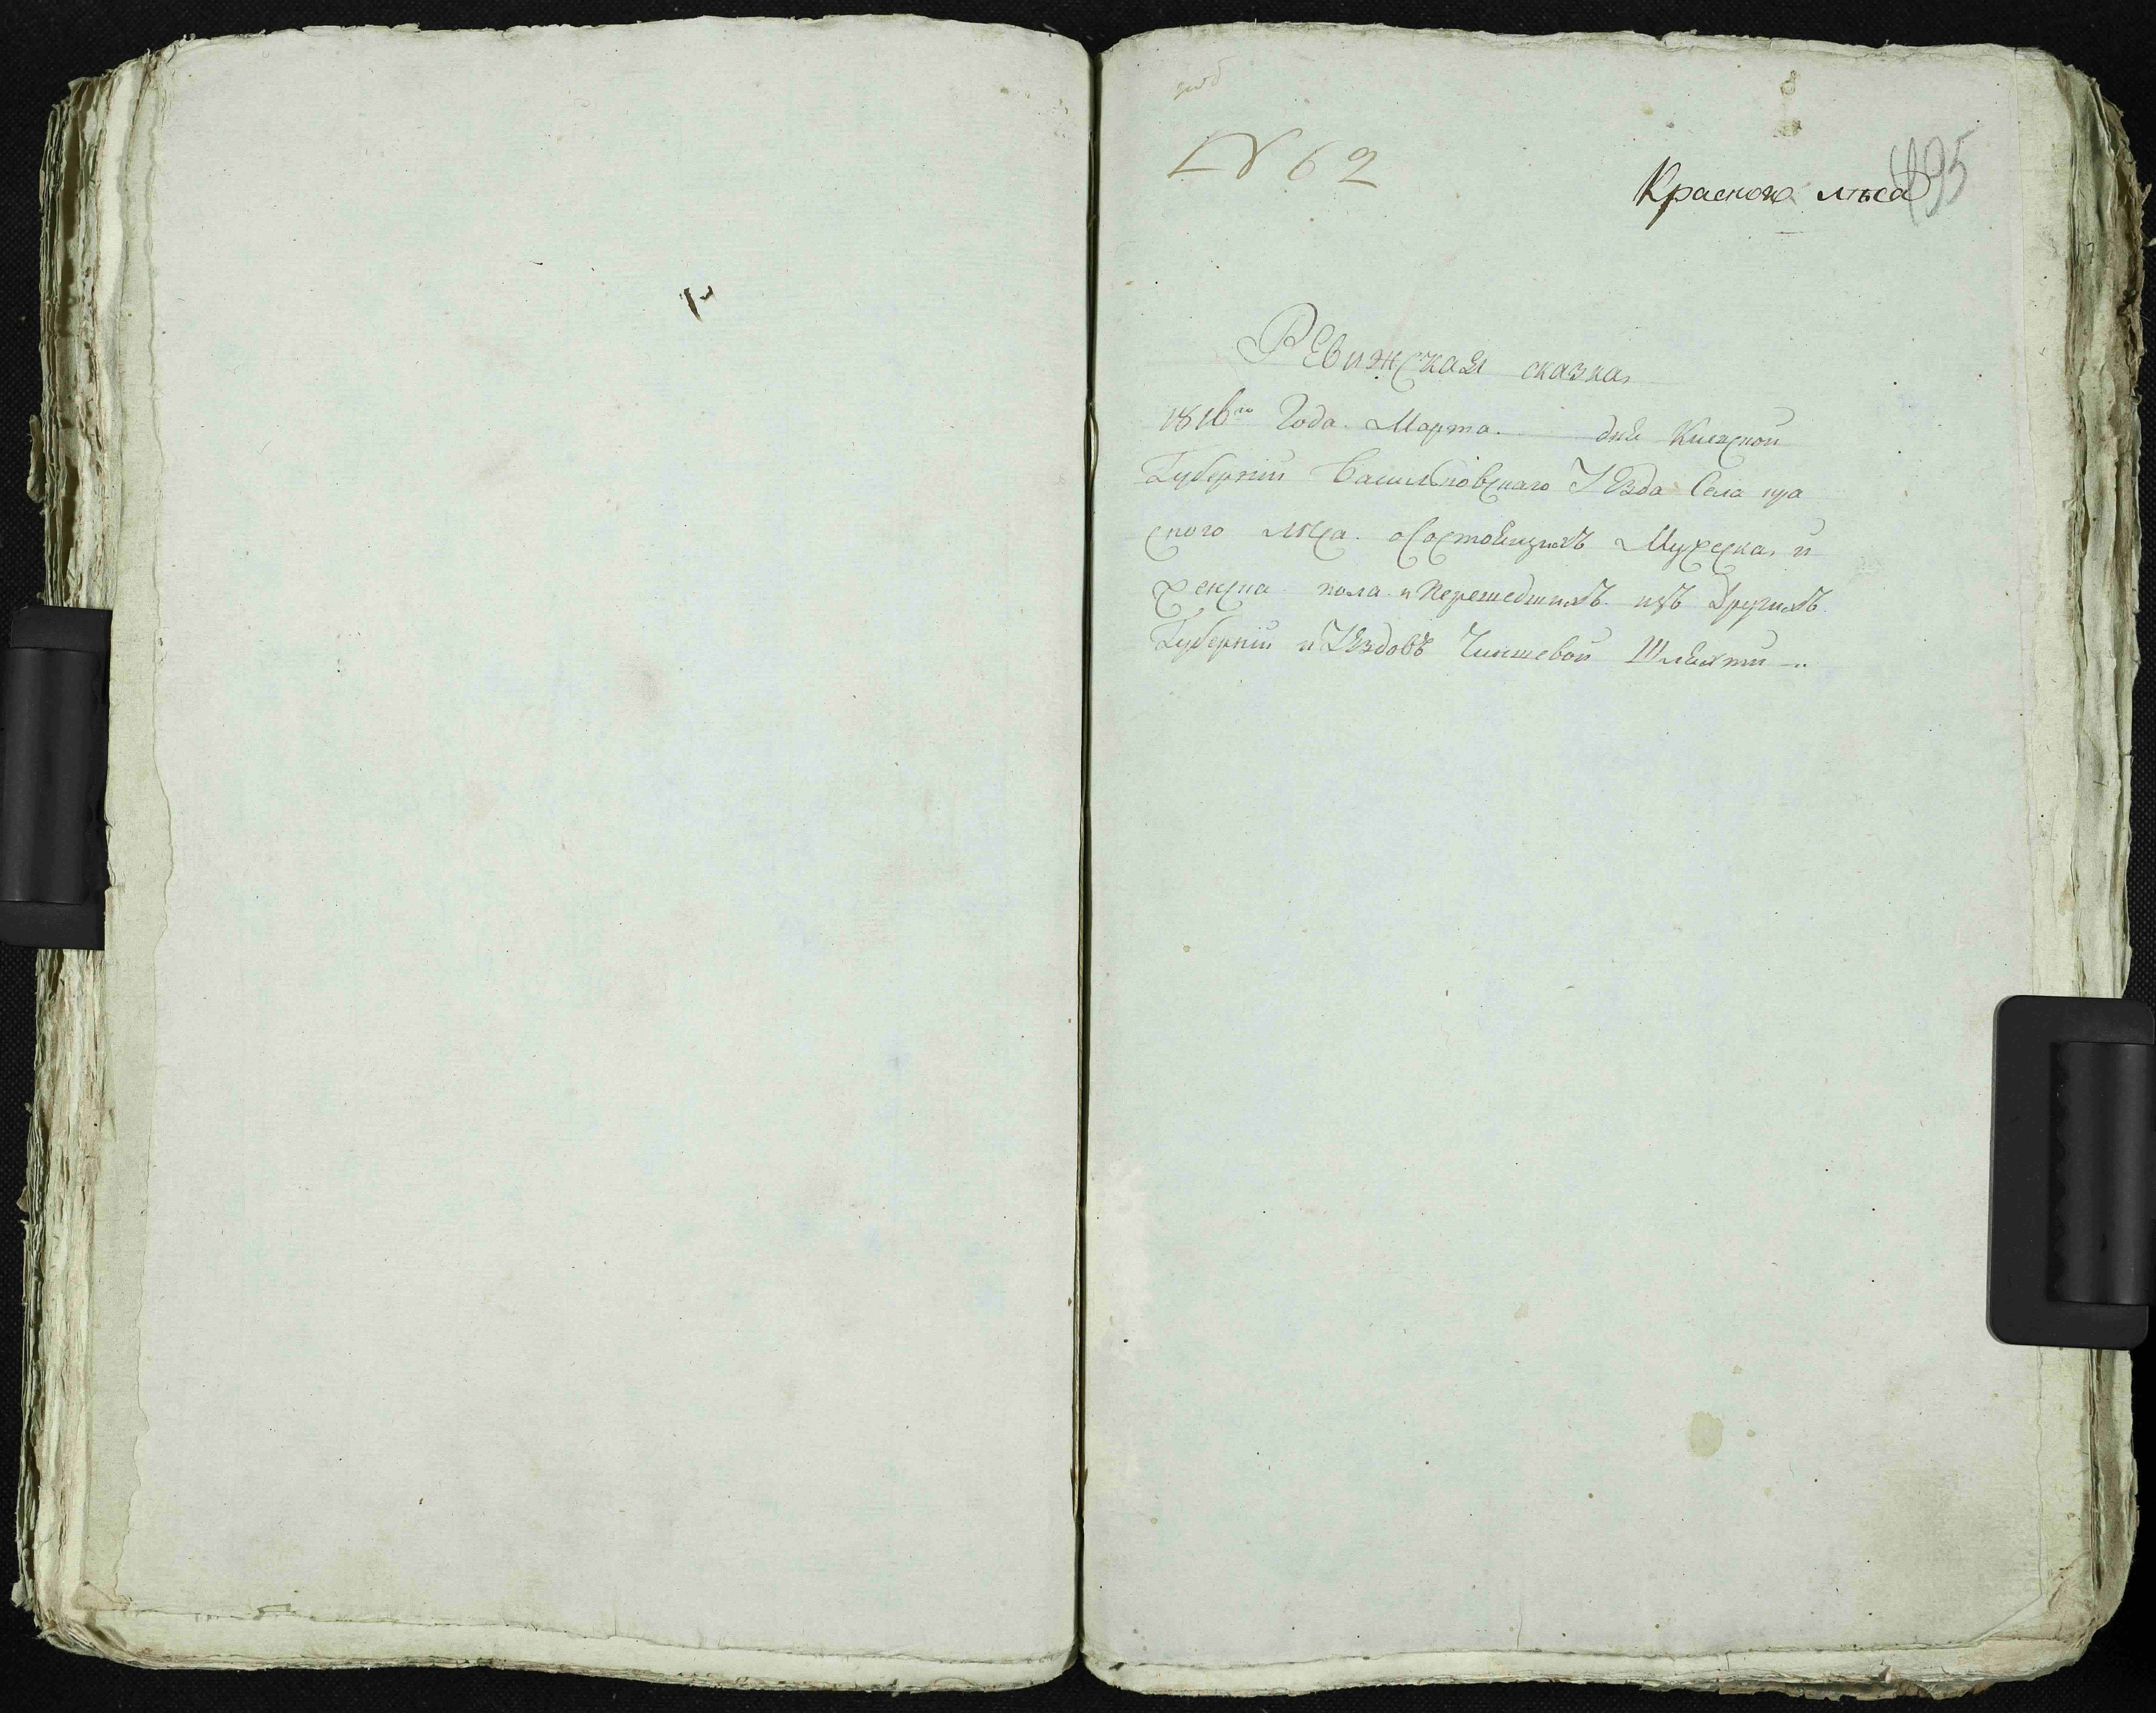 № 62
495
Красного лѣса
Ревижская сказка,
1816го Года. Марта. дня Киевской
Губерніи Васильковскаго Уѣзда Села кра
сного лѣса. о Состоящихъ Мужеска, и
женска пола и перешедшихъ изъ Другихъ
Губерніи и Уѣздовъ Чиншевой Шляхти